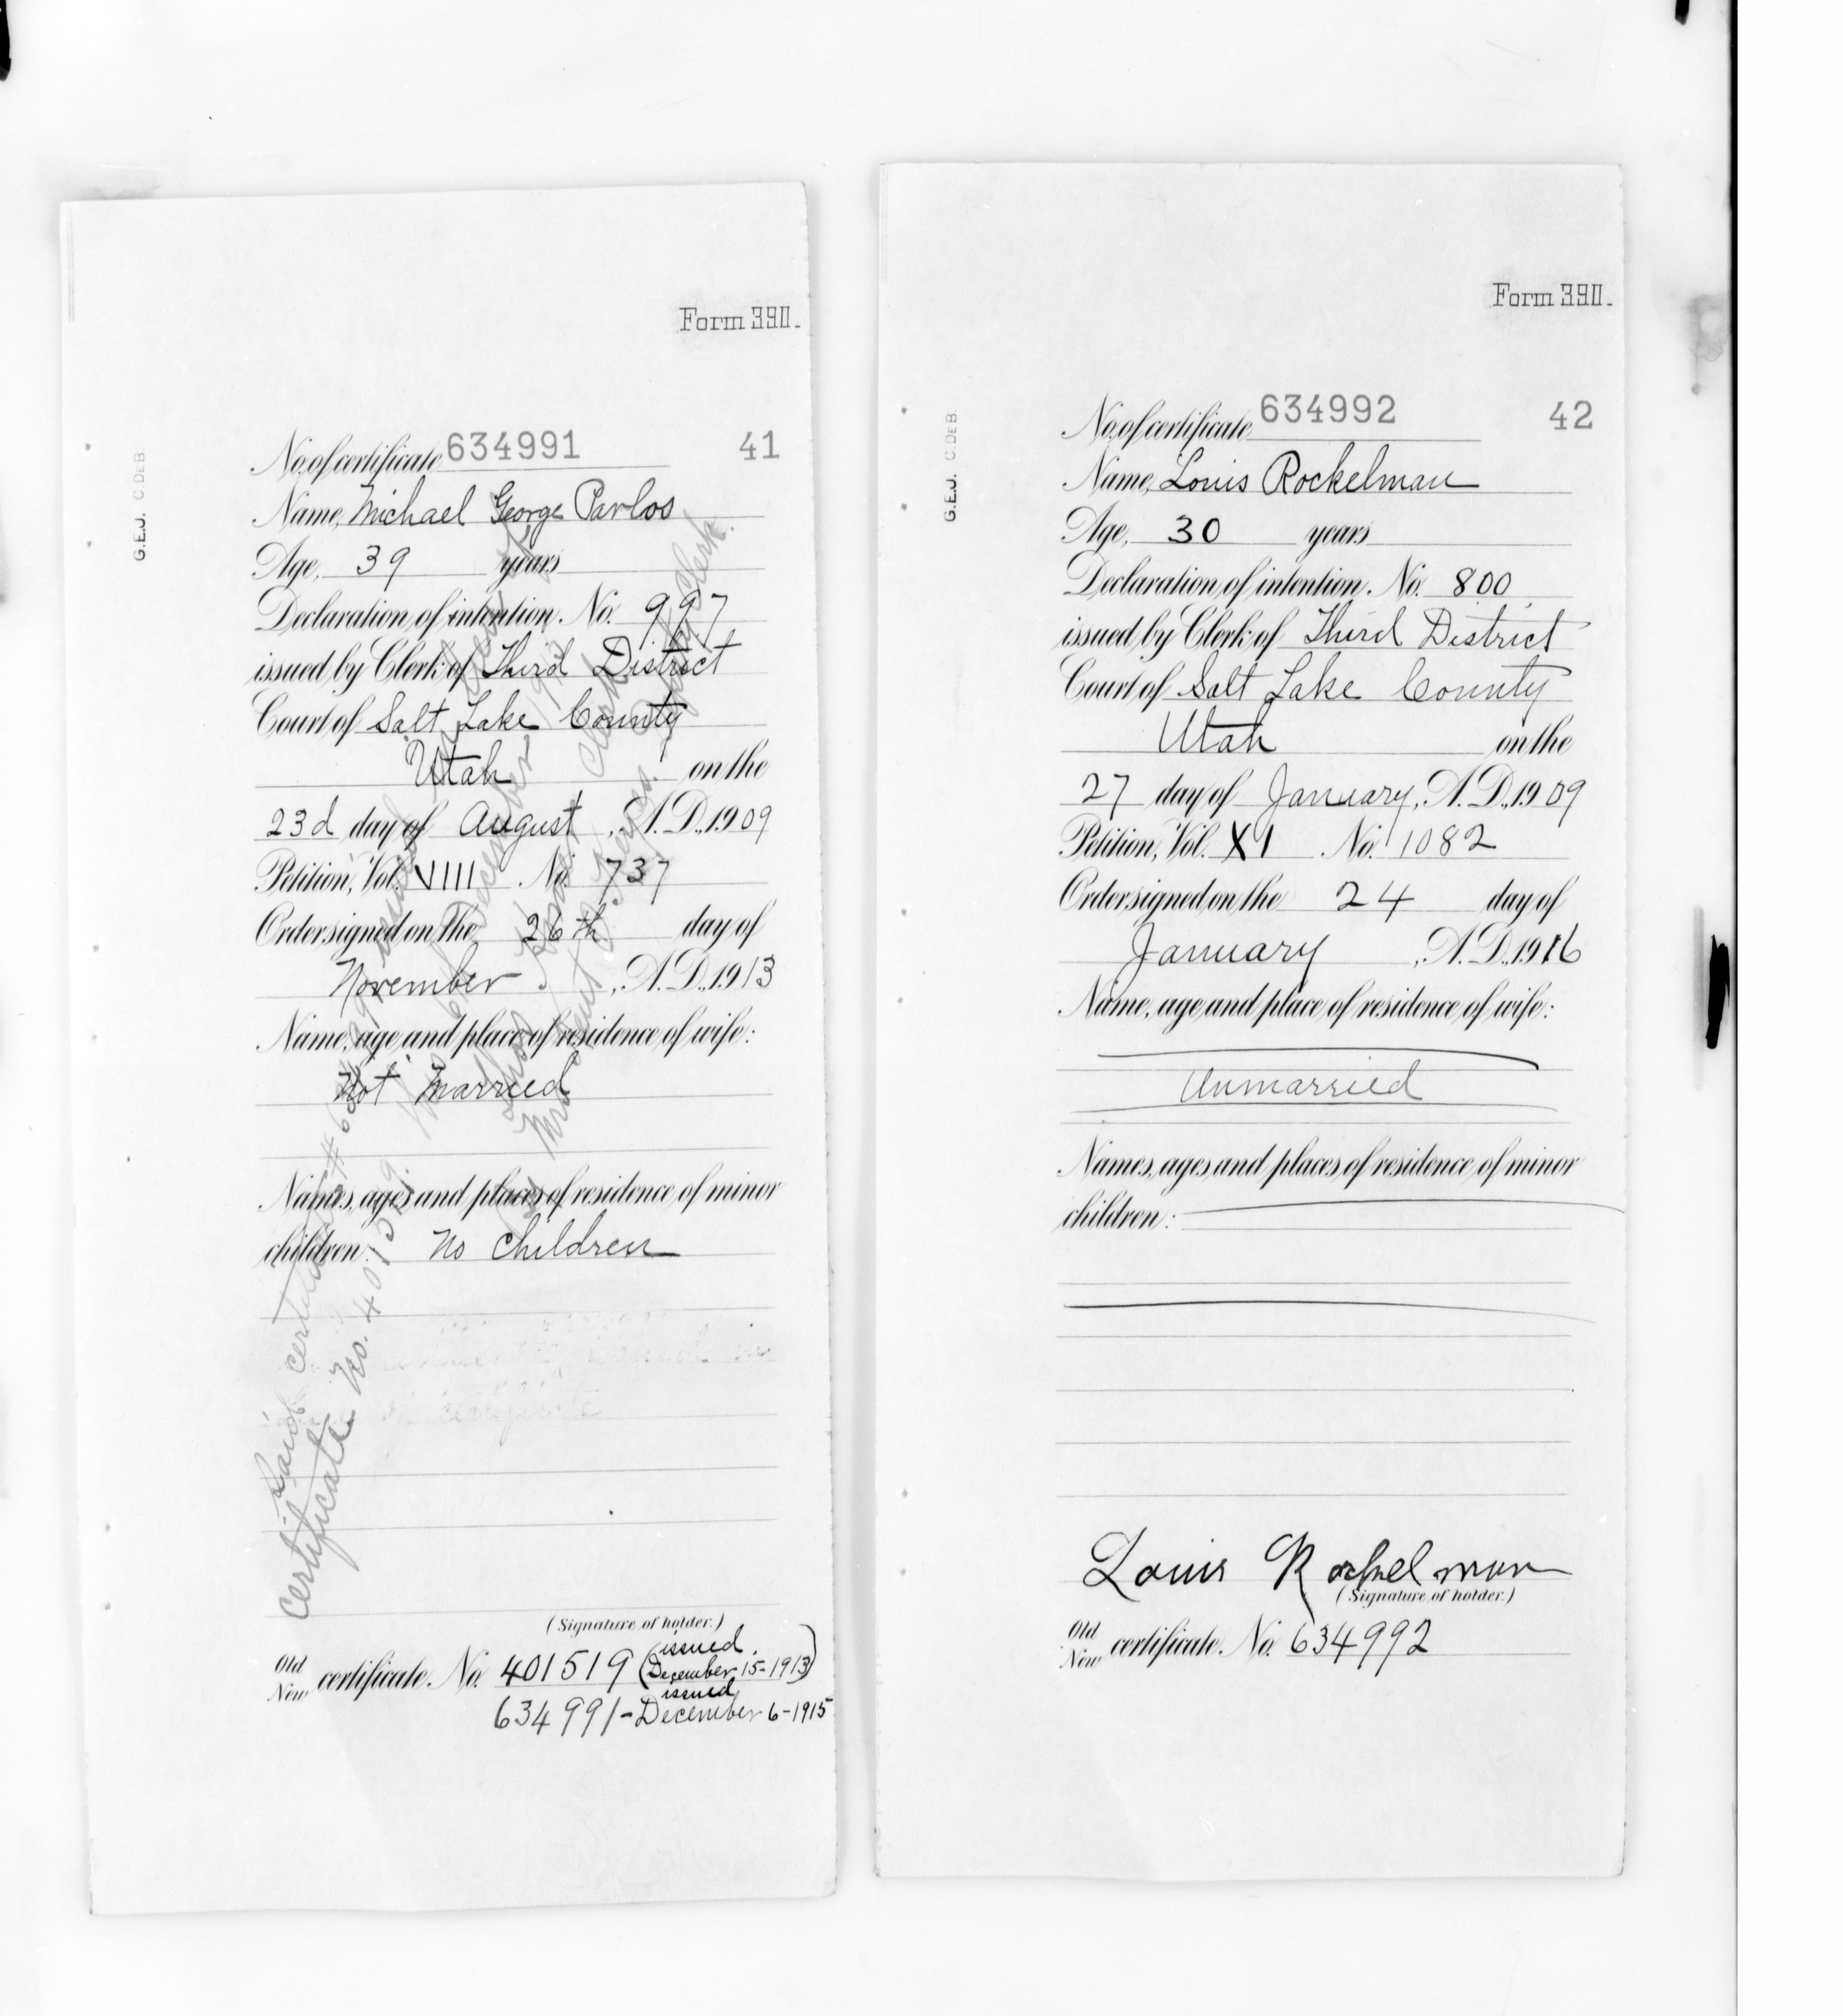 Form 390.
G.E.J. C DE B.
No. of certificate 634991 41
Name, Michael George Pavlos
Age, 39 years
Declaration of intention. No. 997
issued by Clerk of Third District
Court of Salt Lake County
Utah on the
23d day of August, A.D., 1909
Petition, Vol. VIII No. 737
Order signed on the 26th day of
November, A.D., 1913
Name, age and place of residence of wife:
Not Married
Names, ages and places of residence of minor
children: No Children
Said certificate # 634991 issued in lieu of
Certificate No. 401519.
(Signature of holder.)
Old
New certificate No. 401519 (issued December 15-1913)
634991- issued December 6-1915
Form 390.
G.E.J. C DE B.
No. of certificate 634992 42
Name, Louis Rockelman
Age, 30 years
Declaration of intention. No. 800
issued by Clerk of Third District
Court of Salt Lake County
Utah on the
27 day of January, A.D., 1909
Petition, Vol. XI No. 1082
Order signed on the 24 day of
January, A.D., 1916
Name, age and place of residence of wife:
Unmarried
Names, ages and places of residence of minor
children:
Louis Rockelman
(Signature of holder.)
Old
New certificate No. 634992